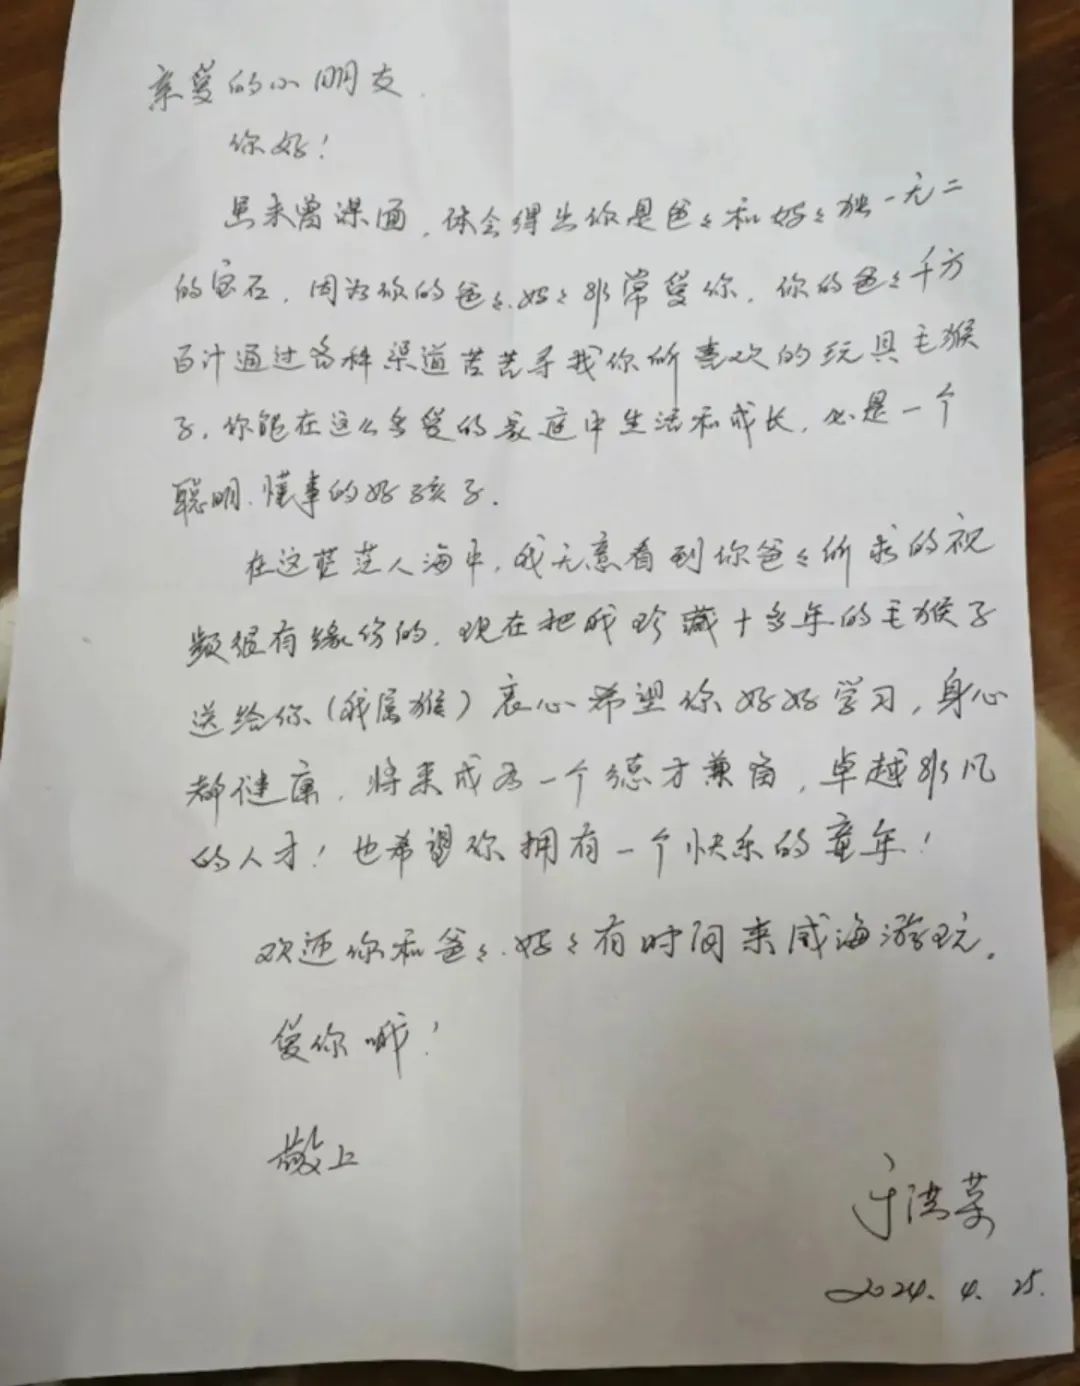 亲爱的小朋友.
你好!
虽未曾谋面,体会得出你是爸々和妈々独一无二
的宝石,因为你的爸々、妈々非常爱你,你的爸々千方
百计通过各种渠道苦苦寻找你所喜欢的玩具毛猴
子,你能在这么多爱的家庭中生活和成长,必是一个
聪明、懂事的好孩子.
在这茫茫人海中,我无意看到你爸々所求的视
频很有缘份的,现在把我珍藏十多年的毛猴子
送给你(我属猴)衷心希望你好好学习,身心
都健康,将来成为一个德才兼备,卓越非凡
的人才!也希望你拥有一个快乐的童年!
欢迎你和爸々、妈々有时间来威海游玩。
爱你哦!
敬上
2024.4.25.